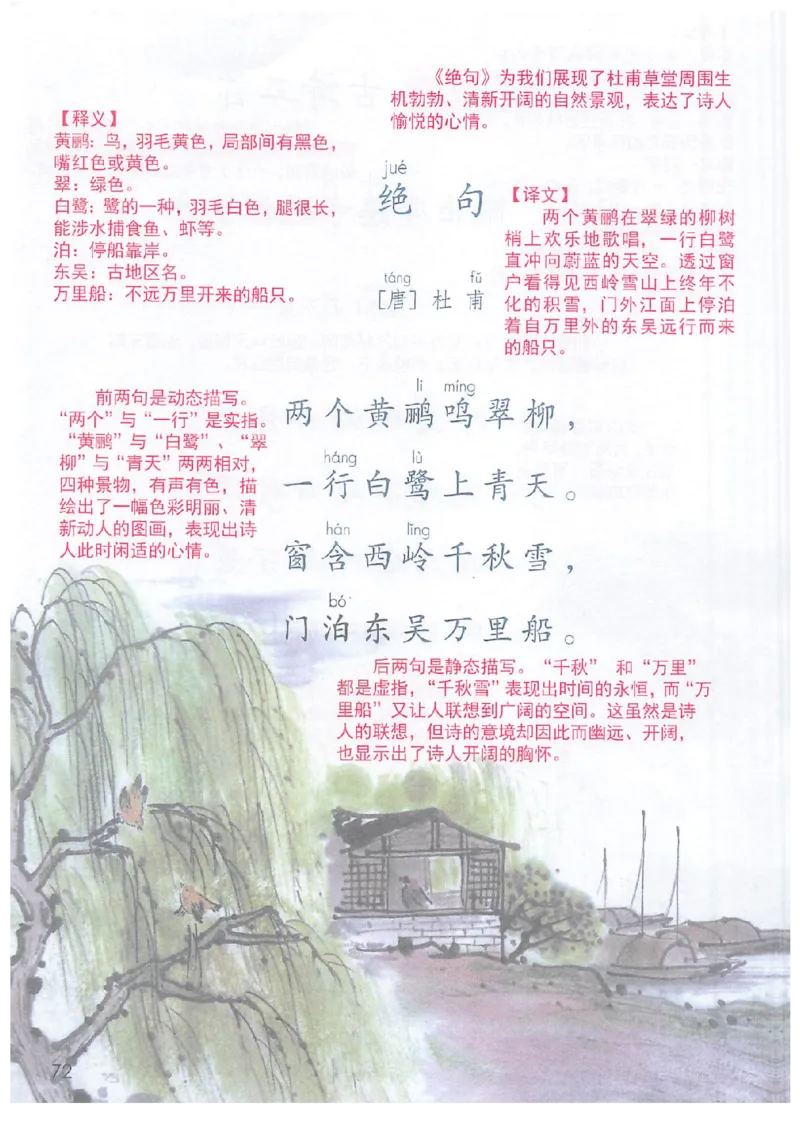 《绝句》为我们展现了杜甫草堂周围生
机勃勃、清新开阔的自然景观，表达了诗人
愉悦的心情。
【释义】
黄鹂：鸟，羽毛黄色，局部间有黑色，
嘴红色或黄色。
翠：绿色。
白鹭：鹭的一种，羽毛白色，腿很长，
能涉水捕食鱼、虾等。
泊：停船靠岸。
东吴：古地区名。
万里船：不远万里开来的船只。
jué
绝 句
táng fǔ
［唐］杜 甫
【译文】
两个黄鹂在翠绿的柳树
梢上欢乐地歌唱，一行白鹭
直冲向蔚蓝的天空。透过窗
户看得见西岭雪山上终年不
化的积雪，门外江面上停泊
着自万里外的东吴远行而来
的船只。
前两句是动态描写。
“两个”与“一行”是实指。
“黄鹂”与“白鹭”、“翠
柳”与“青天”两两相对，
四种景物，有声有色，描
绘出了一幅色彩明丽、清
新动人的图画，表现出诗
人此时闲适的心情。
lí míng
两个黄鹂鸣翠柳，
háng lù
一行白鹭上青天。
hán lǐng
窗含西岭千秋雪，
bó
门泊东吴万里船。
后两句是静态描写。“千秋” 和“万里”
都是虚指，“千秋雪”表现出时间的永恒，而“万
里船”又让人联想到广阔的空间。这虽然是诗
人的联想，但诗的意境却因此而幽远、开阔，
也显示出了诗人开阔的胸怀。
72